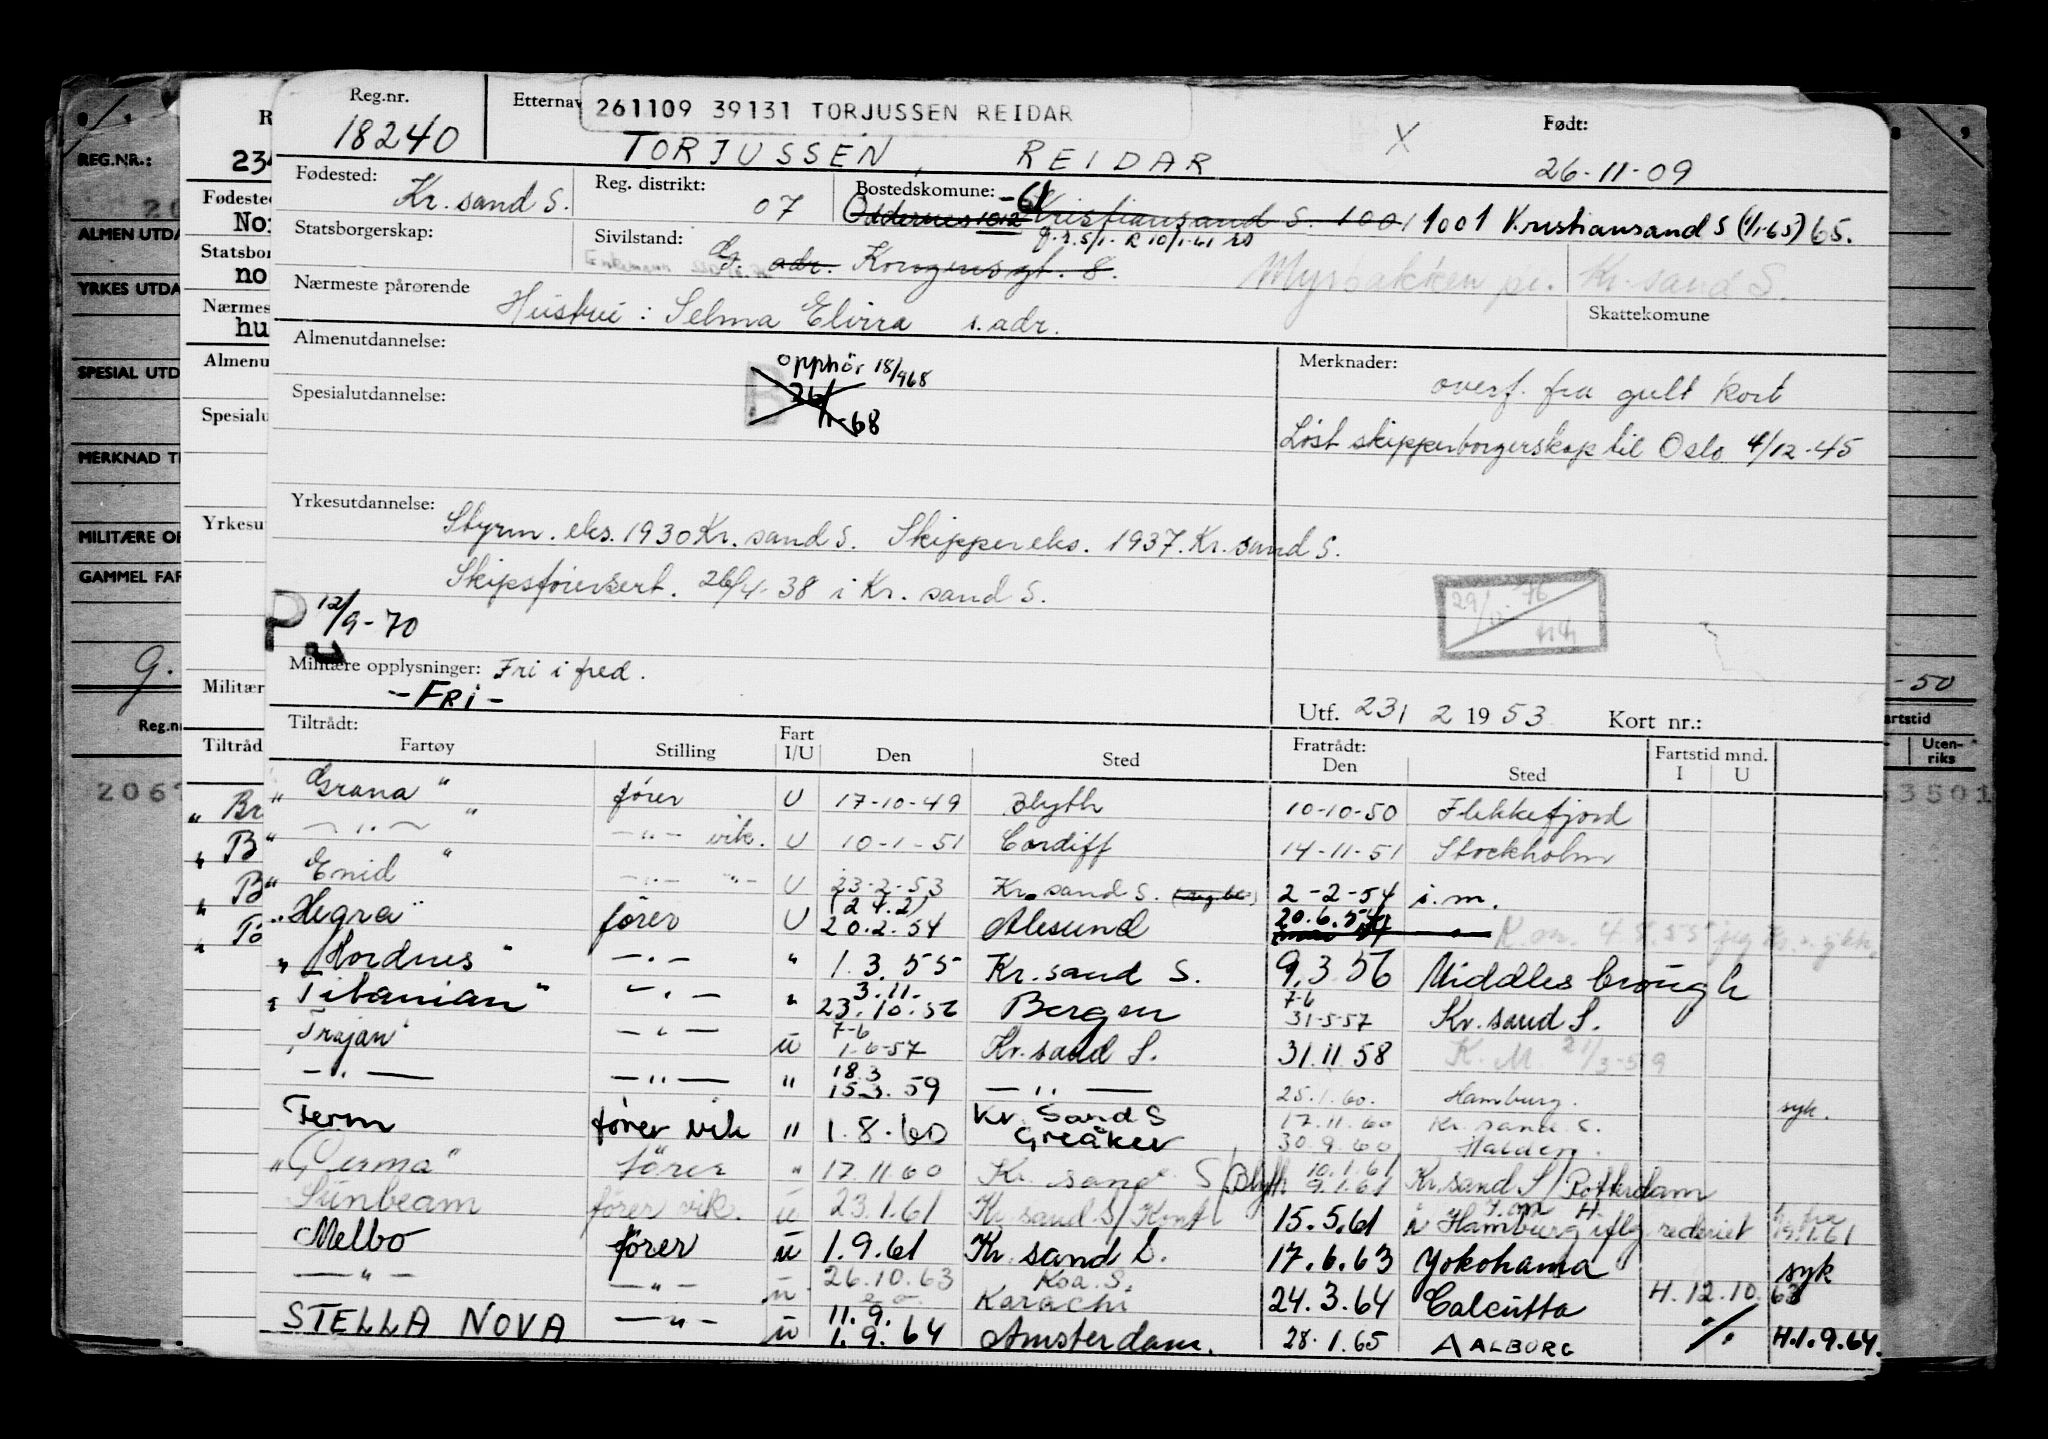 Reg.nr. 18240
Etternav
261109 39131 TORJUSSEN REIDAR
TORJUSSEN, REIDAR
X
Født: 26-11-09
Fødested: Kr. sand S.
Reg. distrikt: 07
Bostedskomune: -61
Oddernes 1012 Kristiansand S. 1001 1001 Kristiansand S (1/1-65) 65.
Statsborgerskap:
Sivilstand: G.
adr. Kongensgt. 8.
Myrbakken pr. Kr. sand S.
Nærmeste pårørende
Hustru: Selma Elvira s. adr.
Skattekomune
Almenutdannelse:
Opphör 18/968
26/11-68
Merknader:
overf. fra gult kort
Løst skipperborgerskap til Oslo 4/12-45
Spesialutdannelse:
Yrkesutdannelse:
Styrm. eks. 1930 Kr. sand S. Skippereks. 1937. Kr. sand S.
Skipsførersert. 26/4-38 i Kr. sand S.
P 12/9-70
29/ 76
Militære opplysninger: Fri i fred.
- FRI -
Utf. 23/ 2 1953 Kort nr.:
Tiltrådt:
Fartøy Stilling Fart I/U Den Sted
Fratrådt: Den Sted
Fartstid mnd. I U
"Grana" fører U 17-10-49 Blyth 10-10-50 Flekkefjord
— " — " — " — vik. U 10-1-51 Cardiff 14-11-51 Stockholm
"Enid" — " — " — U 23-2-53 Kr. sand S. 2-2-54 i.m.
(24.2)
"Hegra" fører U 20.2.54 Ålesund 20.6.54
"Hordnes" — " — " 1.3.55 Kr. sand S. 9.3.56 Middlesbrough
3.11. 7-6
"Titanian" — " — " 23.10.56 Bergen 31-5-57 Kr. sand S.
7-6
"Trajan" — " — u 1-6-57 Kr. sand S. 31.11.58 K.M 21/3-59
18.3
— " — — " — " 15.3.59 — " — 25.1.60. Hamburg. syk.
Kr. Sand S 17.11.60 Kr. sand S.
Term fører vik " 1.8.60 Greåker 30.9.60 Halden.
10.1.61
"Germa" fører " 17.11.60 Kr. sand S/Blyth 9.1.61 Kr. sand S/Rotterdam
Sunbeam fører vik. u 23.1.61 Kr. sand S/ 15.5.61 i Hamburg iflg. rederiet 19.1.61
Melbo fører u 1.9.61 Kr. sand S. 17.6.63 Yokohama syk
— " — — " — u 26.10.63 Karachi 24.3.64 Calcutta H. 12.10.63
11.9.
STELLA NOVA — " — u 1.9.64 Amsterdam. 28.1.65 AALBORG ./. H.1.9.64.
REG.NR.:
ALMEN UTDA
YRKES UTDA
SPESIAL UTD
MERKNAD T
MILITÆRE OP
GAMMEL FAR
G.
Reg.nr
2067
R
234
Fødested
No
Statsbor
no
Nærmes
hu
Almenu
Spesialu
Yrkesu
Militær
Tiltråd
"Br
"B
"B
"To
8 9
-50
artstid
Uten-riks
3501